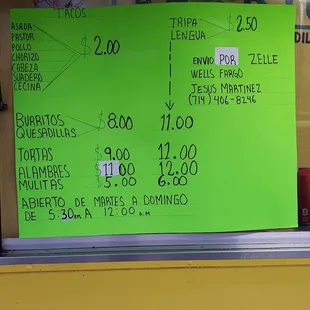 TACOS
ASADA
PASTOR
POLLO
CHORIZO
CABEZA
SUADERO
CECINA
$2.00
TRIPA
LENGUA
$2.50
ENVIO POR ZELLE
WELLS FARGO
JESUS MARTINEZ
(714) 406-8246
BURRITOS $8.00 11.00
QUESADILLAS
TORTAS $9.00 12.00
ALAMBRES $11.00 12.00
MULITAS $5.00 6.00
ABIERTO DE MARTES A DOMINGO
DE 5:30PM A 12:00 AM